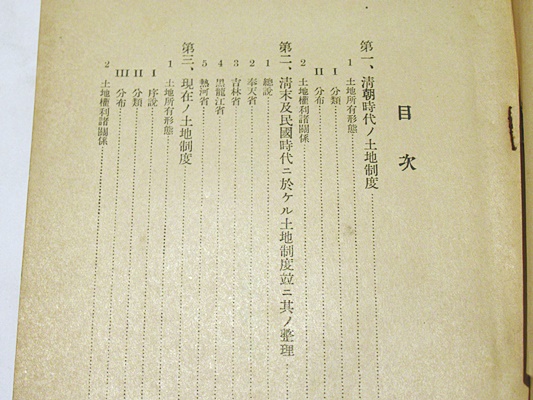 目次
第一、清朝時代ノ土地制度
1 土地所有形態
I 分類
II 分布
2 土地權利諸關係
第二、清末及民國時代ニ於ケル土地制度竝ニ其ノ整理
1 總說
2 奉天省
3 吉林省
4 黑龍江省
5 熱河省
第三、現在ノ土地制度
1 土地所有形態
I 序說
II 分類
III 分布
2 土地權利諸關係